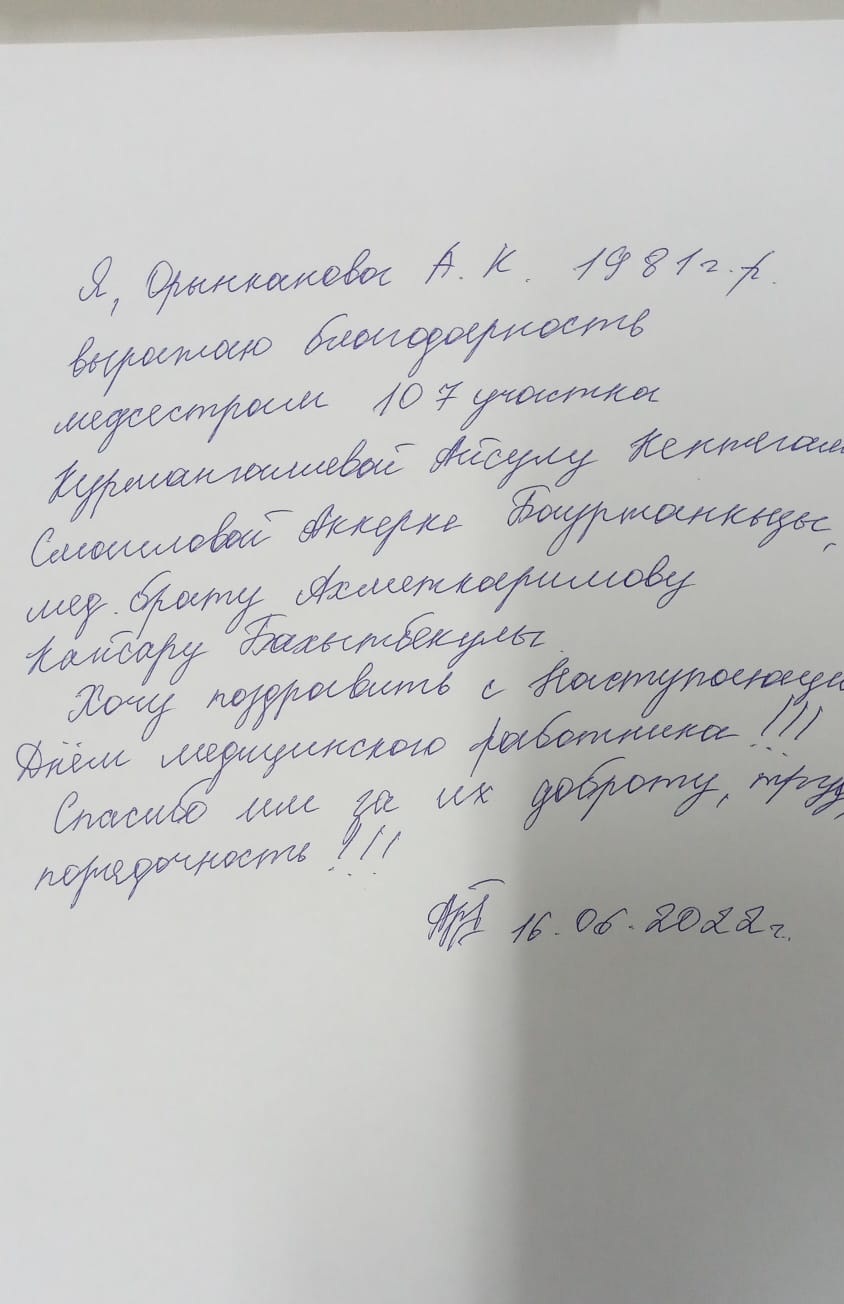 Я, Орынканова А. К. 1981г.р.
выражаю благодарность
медсестрам 107 участка
Курмангалиевой Айсулу
Смаиловой Аккерке Бауржанкызы,
мед. брату Ахметкаримову
Кайсару Бахытбекулы.
Хочу поздравить с Наступающи
Днём медицинского работника!!!
Спасибо им за их доброту, труд,
порядочность!!!
16.06.2022г.